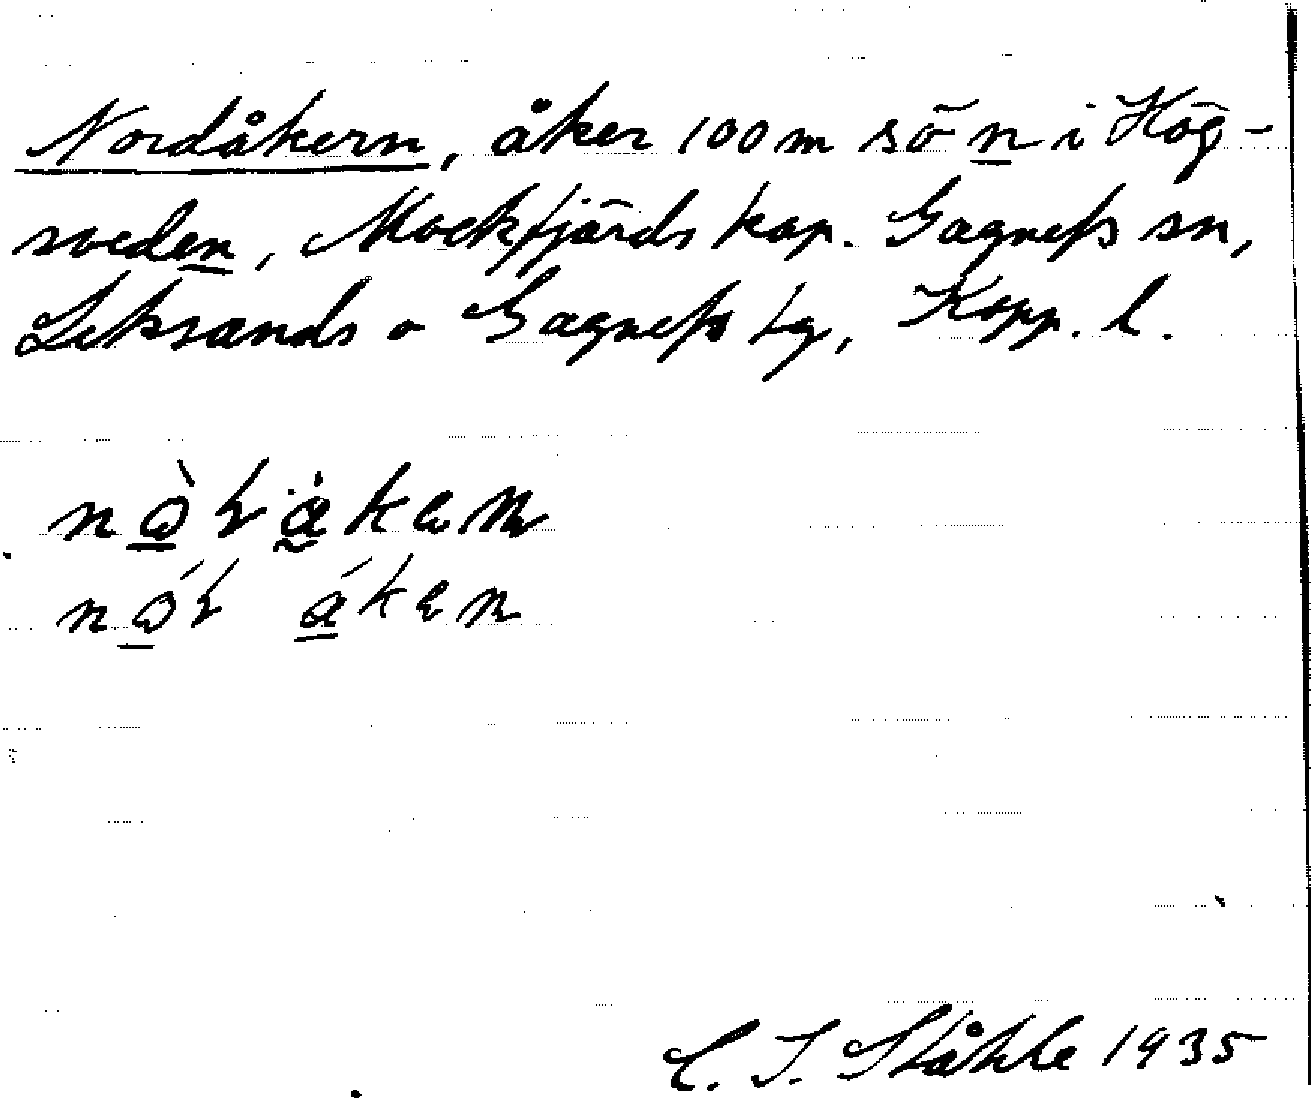 Nordåkern, åker 100 m sö n i Hög-
sveden, Mockfjärds kap. Gagnefs sn,
Leksands o Gagnefs tg, Kopp. l.
C. I. Ståhle 1935